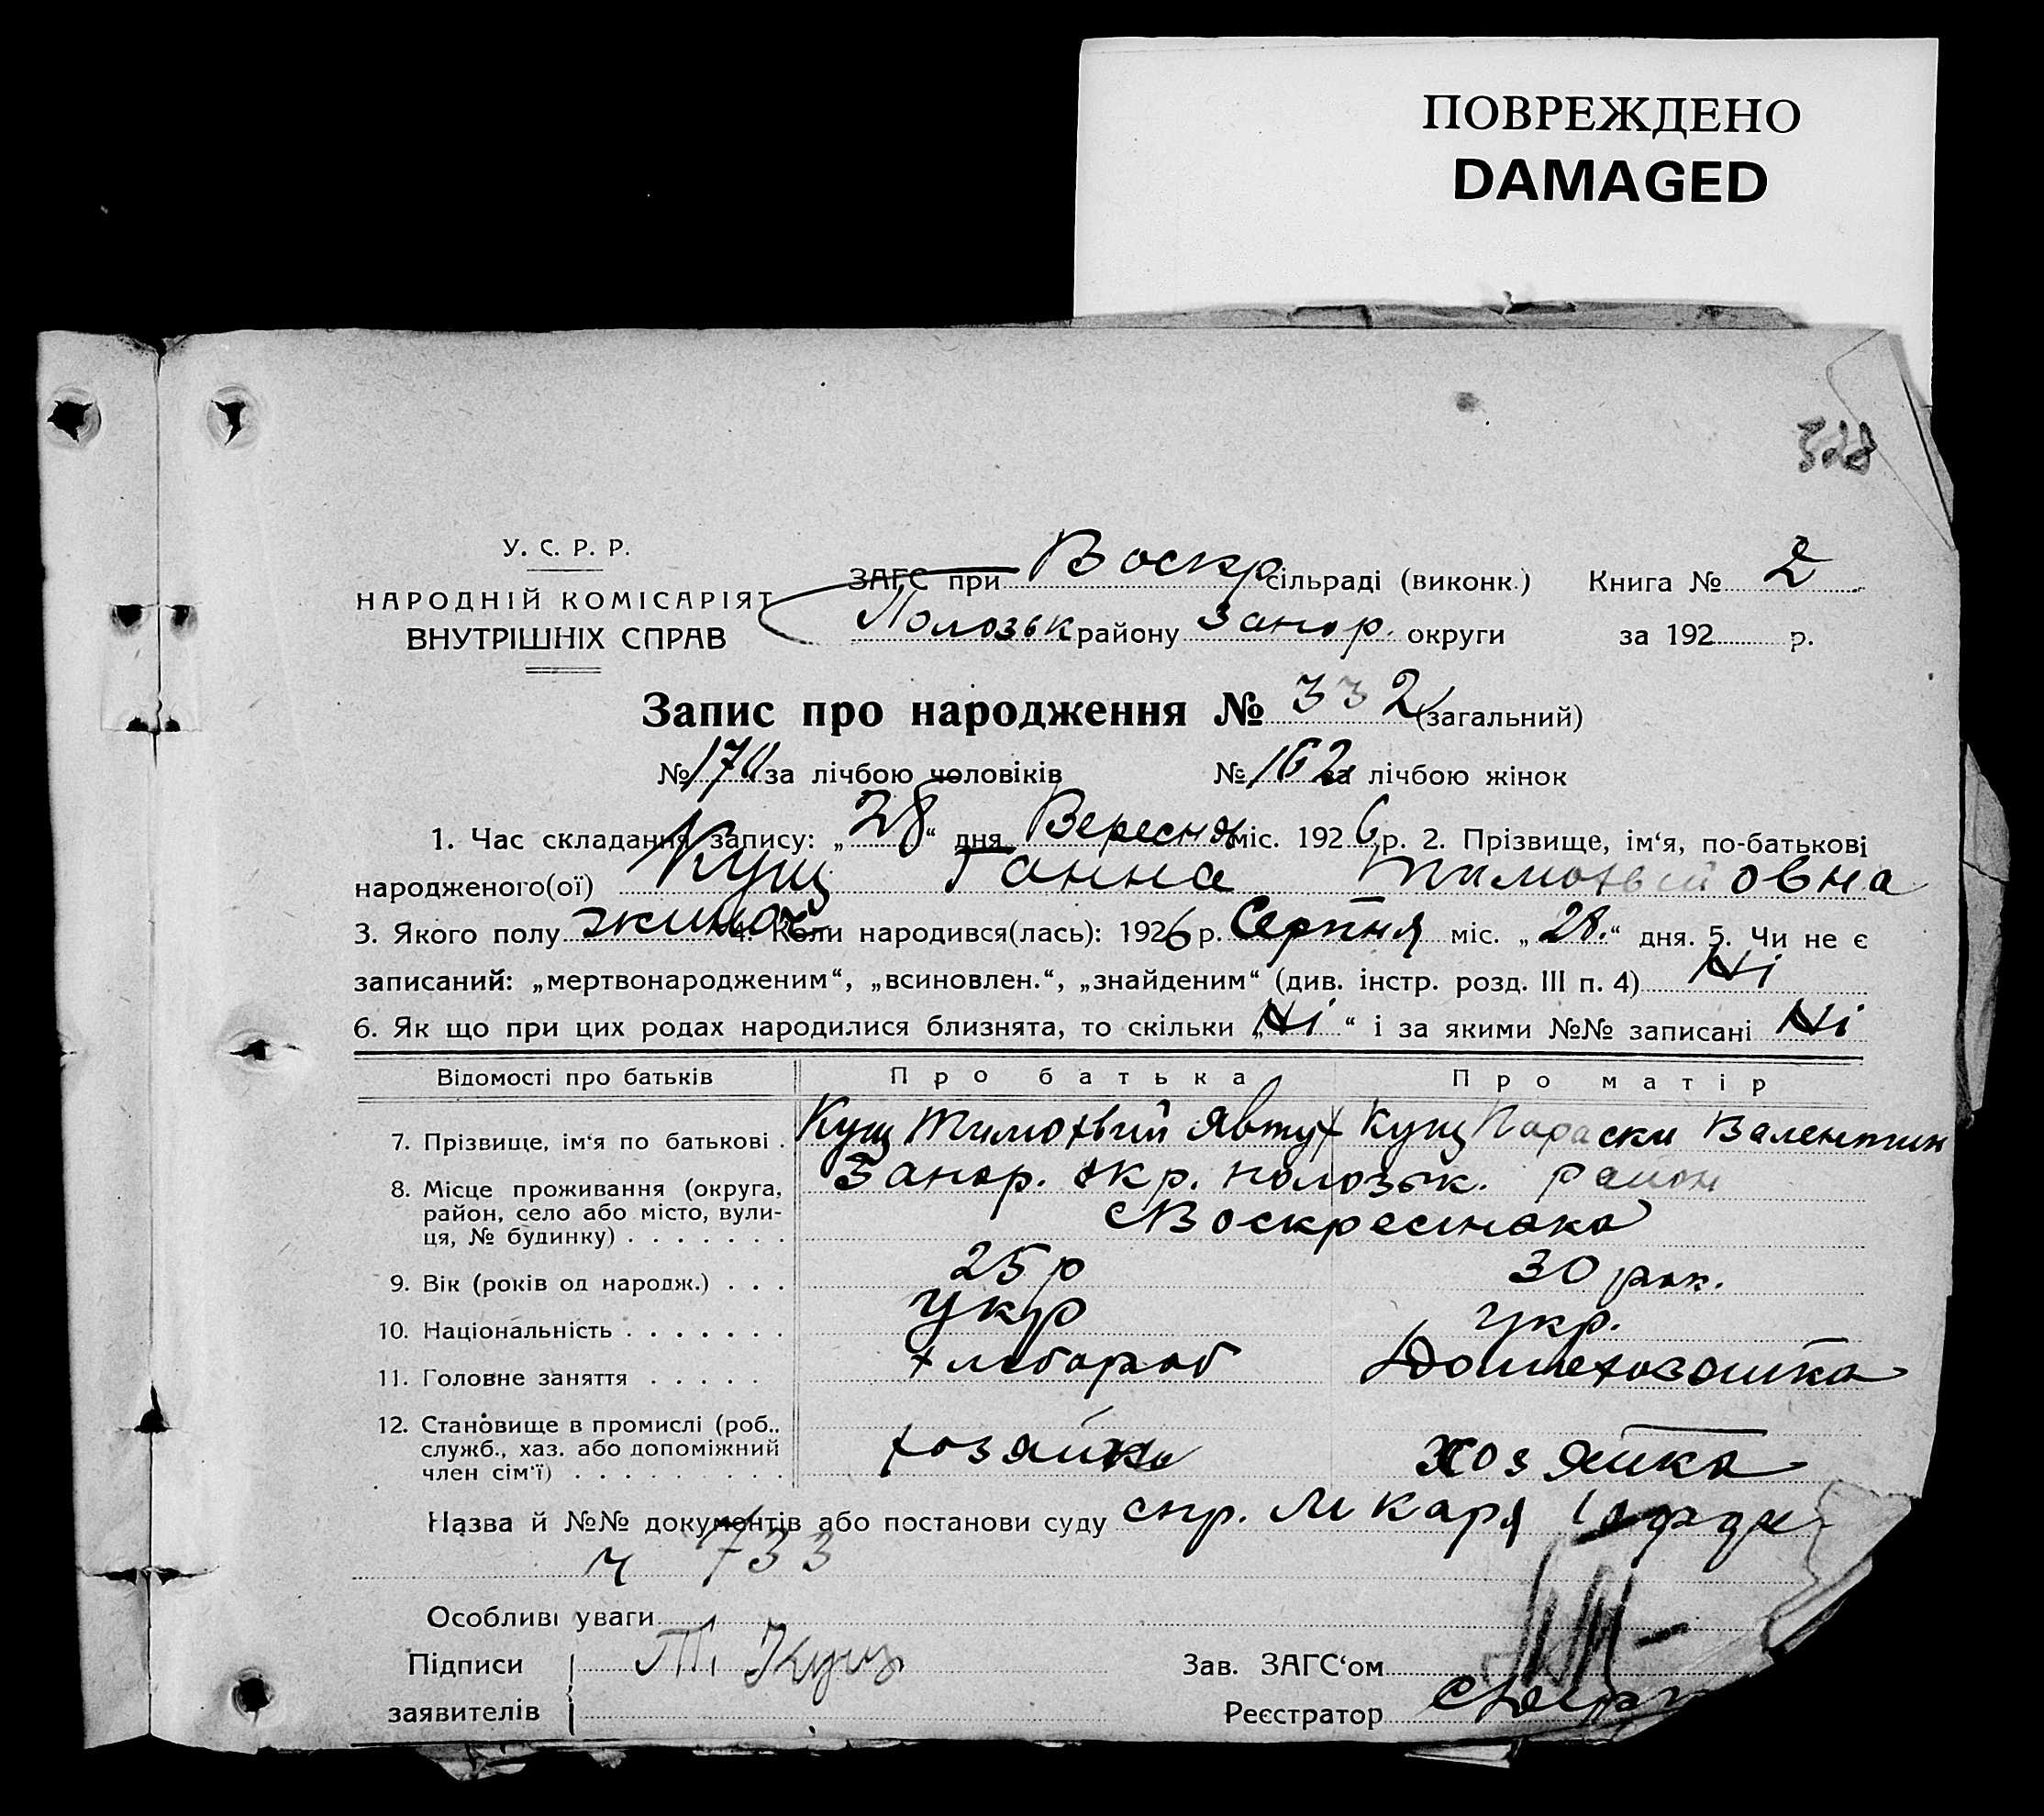 ПОВРЕЖДЕНО
DAMAGED
328
У. С. Р. Р.
НАРОДНІЙ КОМІСАРІЯТ
ВНУТРІШНІХ СПРАВ
ЗАГС при Воскр сільраді (виконк.) Книга № 2
Полозьк району Запор. округи за 192 р.
Запис про народження № 332 (загальний)
№ 170 за лічбою чоловіків № 162 за лічбою жінок
1. Час складання запису: „28“ дня Вересня міс. 1926 р. 2. Прізвище, ім‘я, по-батькові
народженого(ої) Кущ Ганна Тимохвійовна
3. Якого полу жиноч 4. Коли народився(лась): 1926 р. Серпня міс. „28.“ дня. 5. Чи не є
записаний: „мертвонародженим“, „всиновлен.“, „знайденим“ (див. інстр. розд. III п. 4) Ні
6. Як що при цих родах народилися близнята, то скільки „Ні“ і за якими №№ записані Ні
Відомості про батьків Про батька Про матір
7. Прізвище, ім‘я по батькові . Кущ Тимохвий Явтух Кущ Параски Валентин
8. Місце проживання (округа, Запор. окр. полозьк. район
район, село або місто, вули- с Воскресінака
ця, № будинку) . . . . . . .
9. Вік (років од народж.) . . . 25 р 30 рок.
10. Національність . . . . . . . укр укр.
11. Головне заняття . . . . . хлебороб Домохозяйка
12. Становище в промислі (роб.,
служб., хаз. або допоміжний хозяйн хозяйка
член сім‘ї) . . . . . . . . .
Назва й №№ документів або постанови суду спр. лікаря
ч 733
Особливі уваги
Підписи Т. Кущ Зав. ЗАГС‘ом
заявителів Реєстратор